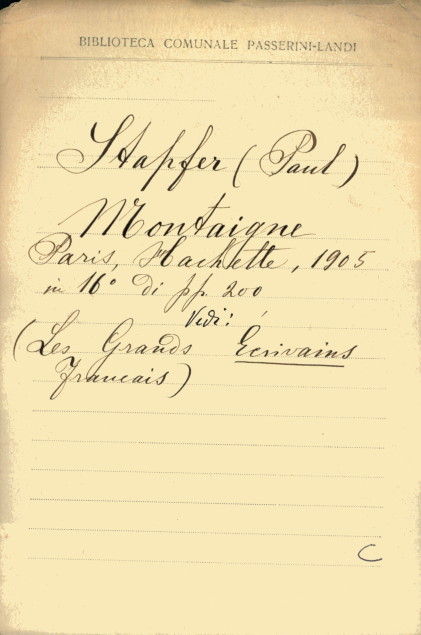 BIBLIOTECA COMUNALE PASSERINI-LANDI
Stapfer (Paul)
Montaigne
Paris, Hachette, 1905
in 16° di pp. 200
Vedi:
(Les Grands Ecrivains
Francais)
C